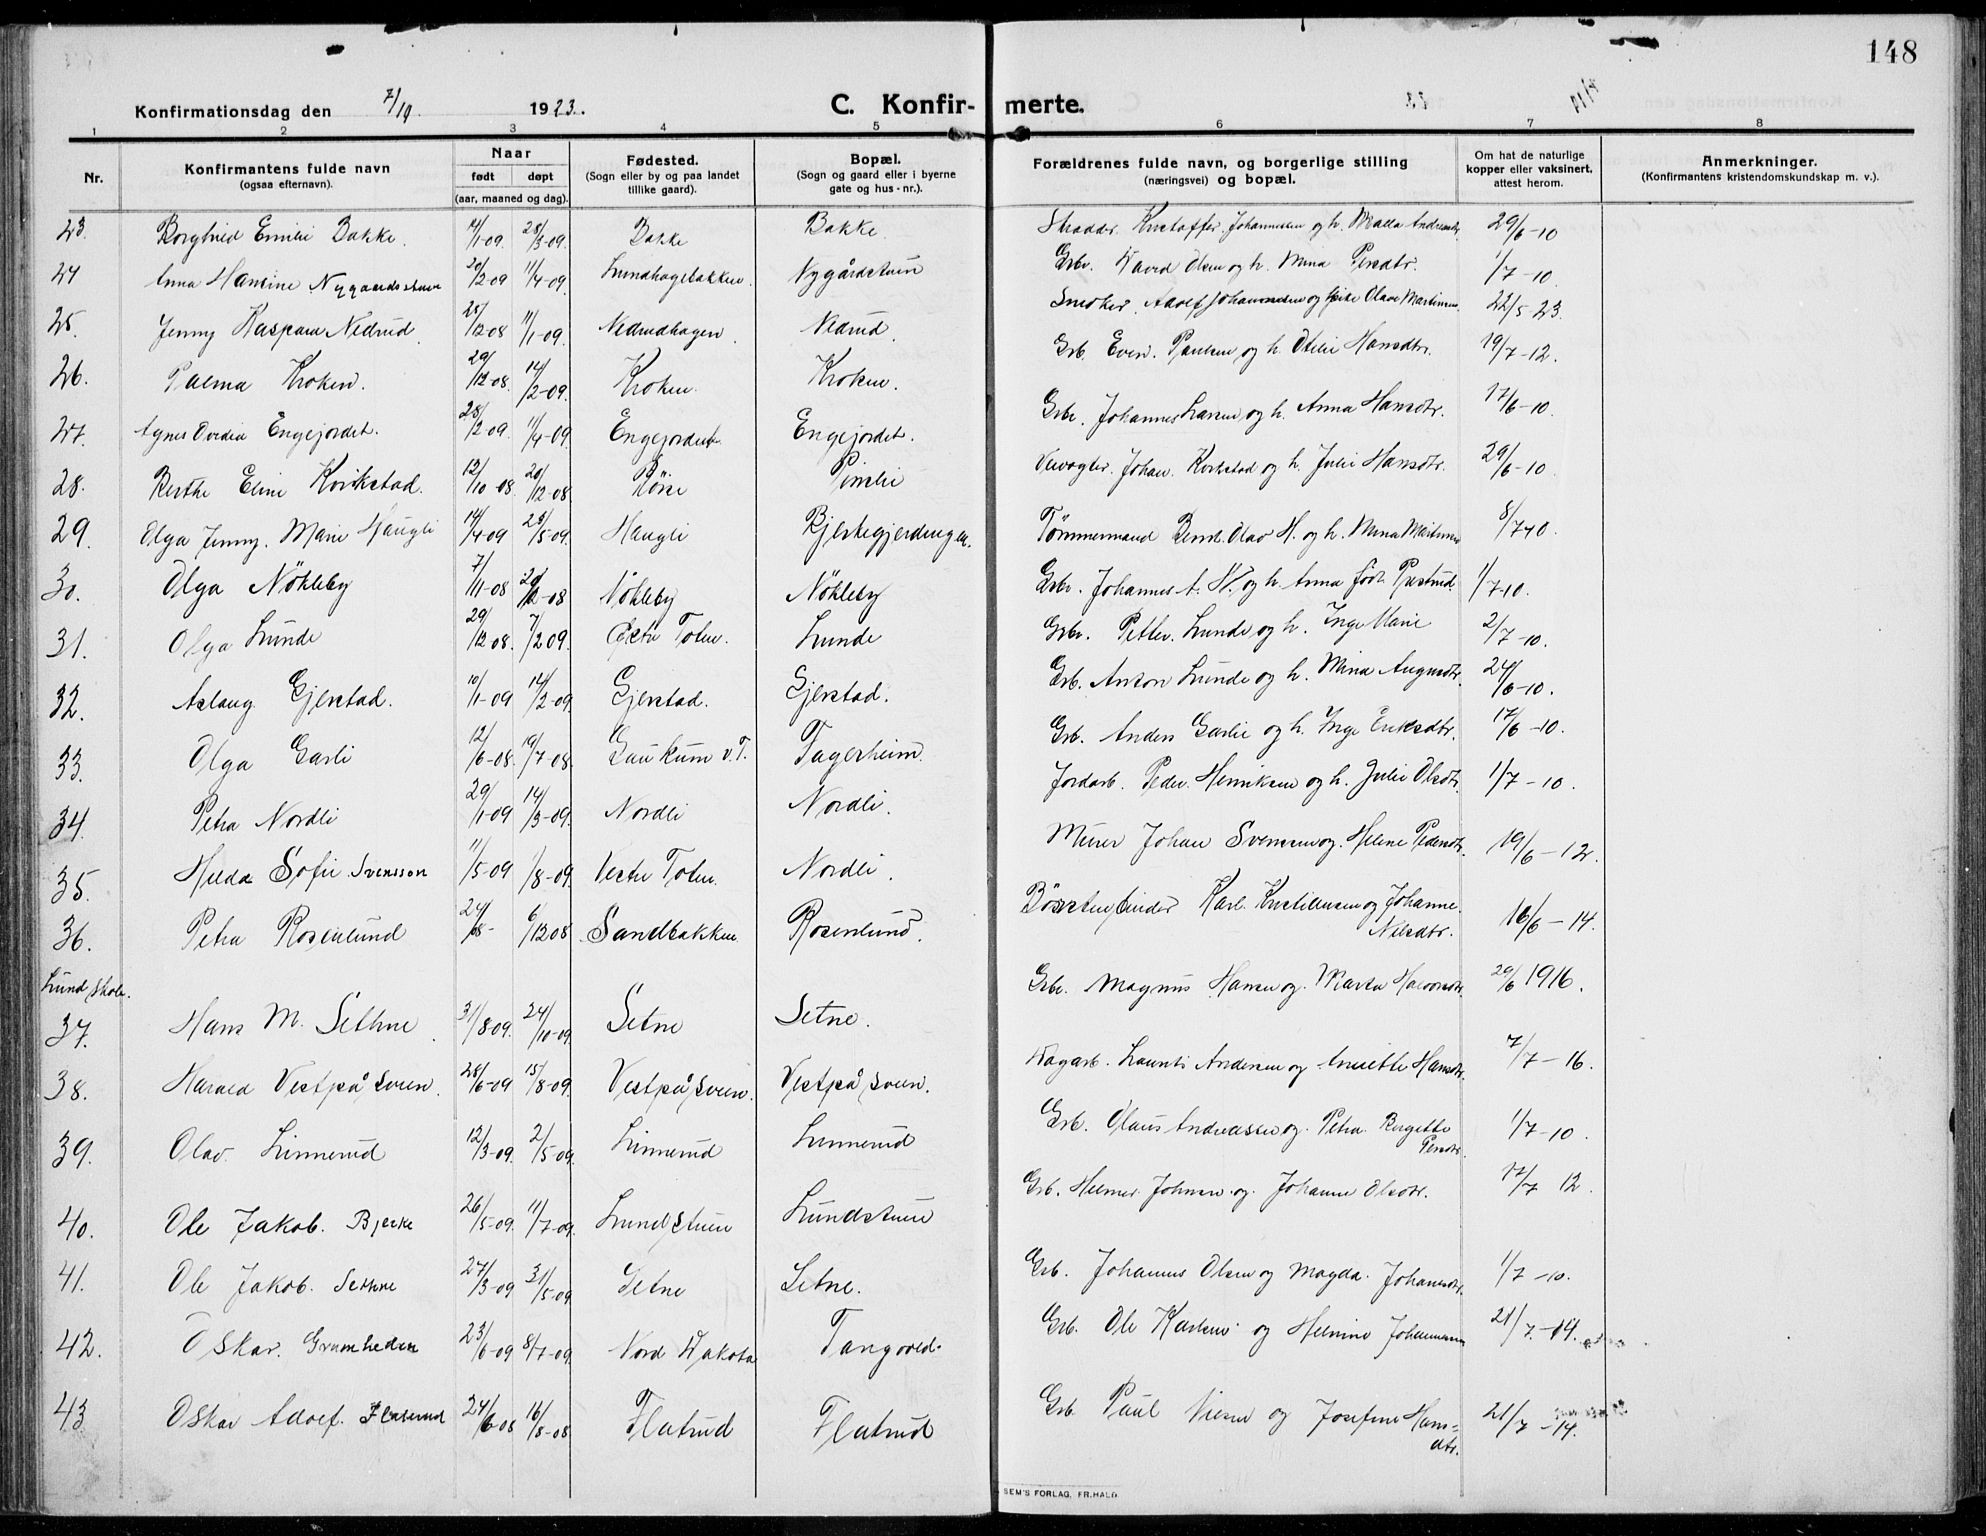 148
Konfirmationsdag den 7/10 1923.
C. Konfirmerte.
1 2 3 4 5 6 7 8
Nr.
Konfirmantens fulde navn
(ogsaa efternavn).
Naar
født døpt
(aar, maaned og dag).
Fødested.
(Sogn eller by og paa landet
tillike gaard).
Bopæl.
(Sogn og gaard eller i byerne
gate og hus-nr.).
Forældrenes fulde navn, og borgerlige stilling
(næringsvei) og bopæl.
Om hat de naturlige
kopper eller vaksinert,
attest herom.
Anmerkninger.
(Konfirmantens kristendomskundskap m. v.).
23. Borghild Emilie Bakke. 14/1-09. 28/3-09. Bakke Bakke. Skrædder Kristoffer Johannesen og h. 29/6-10
24 Anna Hansine Nygaardsstuen 20/2-09 11/4-09. Lundhagebakken. Nygårdstuen Gbr. David Olsen og h. Mina Persdtr. 1/7-10.
25. Jenny Kaspara Nedrud. 28/12 08 11/1-09. Nedrudhagen. Nedrud. Snekker. Adolf Johannesen og Olave Martinsen 22/5-23.
26. Palma Kroken. 29/12-08. 14/2-09. Kroken. Kroken. Grb. Even. Paulsen og h. Otelie Hansdtr. 19/7-12.
27. Agnes Ovedia Engejordet. 28/2-09. 11/4-09. Engejordet. Engejordet. Gbr. Johannes Larsen og h. Anna Hansdtr. 17/6-10.
28. Berthe Eline Kvikstad. 12/10-08. 20/12-08. Pirelie Veivogter. Johan Kvikstad og h. Julie Hansdtr. 29/6-10.
29. Olga Jenny. Marie Haugli 14/4-09 23/5-09. Haugli Bjerkegjerdingen. Tømmermand Bernt Olav H. og h. Mina 8/7-10.
30. Olga Nökleby 7/11-08 Nökleby Nökleby Gbr. Johannes A. N. og h. Anna født 1/7-10.
31. Olga Lunde 29/12 08. 7/2 09. Østre Toten. Lunde Gbr. Petter. Lunde og h. Inge Marie 2/7-10.
32. Aslaug Gjerstad. 10/1-09 14/2-09. Gjerstad. Gjerstad. Grb. Anton Lunde og h. Mina 24/6-10.
33. Olga Garli 12/6-08. 19/7-08. Gaukum v. T. Fagerheim. Grb. Anders Garlie og h. Inge Eriksdtr. 17/6-10.
34. Petra Nordli 29/1-09 14/3-09. Nordli Nordli. Jordarb. Peder. Henriksen og h. Julie Olsdtr. 1/7-10.
35. Hilda Sofie Svensson 11/5-09 1/8-09. Vestre Toten. Nordli. Murer Johan Svensson og. Helene Pedersdtr. 19/6-12.
36. Petra Rosenlund 24/ 08- 6/12 08 Sandbakken Rosenlund. Børstenbinder Karl. Kristiansen og Johanne. Nilsdtr. 16/6-14.
Lund skole.
37. Hans M. Sethne. 31/8 09. 24/10-09. Setne Setne. Gbr. Magnus Hansen og. Marta Halvorsdtr. 29/6 1916.
38. Harald Vestpåsveen. 28/6-09 15/8-09. Vestpåsveen. Vestpåsveen. Dagarb. Laurits Andersen og Anette Hansdtr. 7/7-16.
39. Olav. Linnerud 12/3-09. 2/5-09. Linnerud Linnerud Grb. Olaus Andreassen og. Petra Bergette Persdtr. 1/7-10.
40. Ole Jakob. Bjerke 26/5-09. 11/7-09. Lundstuen Lundstuen Grb. Helmer Johnsen. og. Johanne Olsdtr. 17/7 12.
41. Ole Jakob. Sethne 27/3-09 31/5-09 Setne Setne. Grb. Johannes Olsen og Magda. Johansdtr. 1/7-10.
42. Oskar. Grønheden 23/6-09 8/7-09. Nord Dakota Tangvold. Grb. Ole Karlsen og Helmine Johannesen 21/7.-14.
43 Oskar Adolf. Flaterud 24/6-08 16/8-08. Flatrud Flatrud Grb. Paul Nilsen og Josefine Hans=
dtr. 21/7-14.
SEM'S FORLAG, FR.HALD.